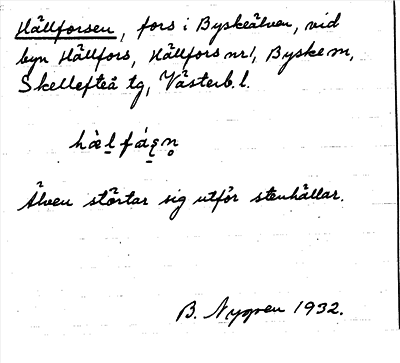 Hällforsen, fors i Byskeälven, vid
byn Hällfors, Hällfors nr 1, Byske sn,
Skellefteå tg, Västerb. l.
Älven störtar sig utför stenhällar.
B. Nygren 1932.